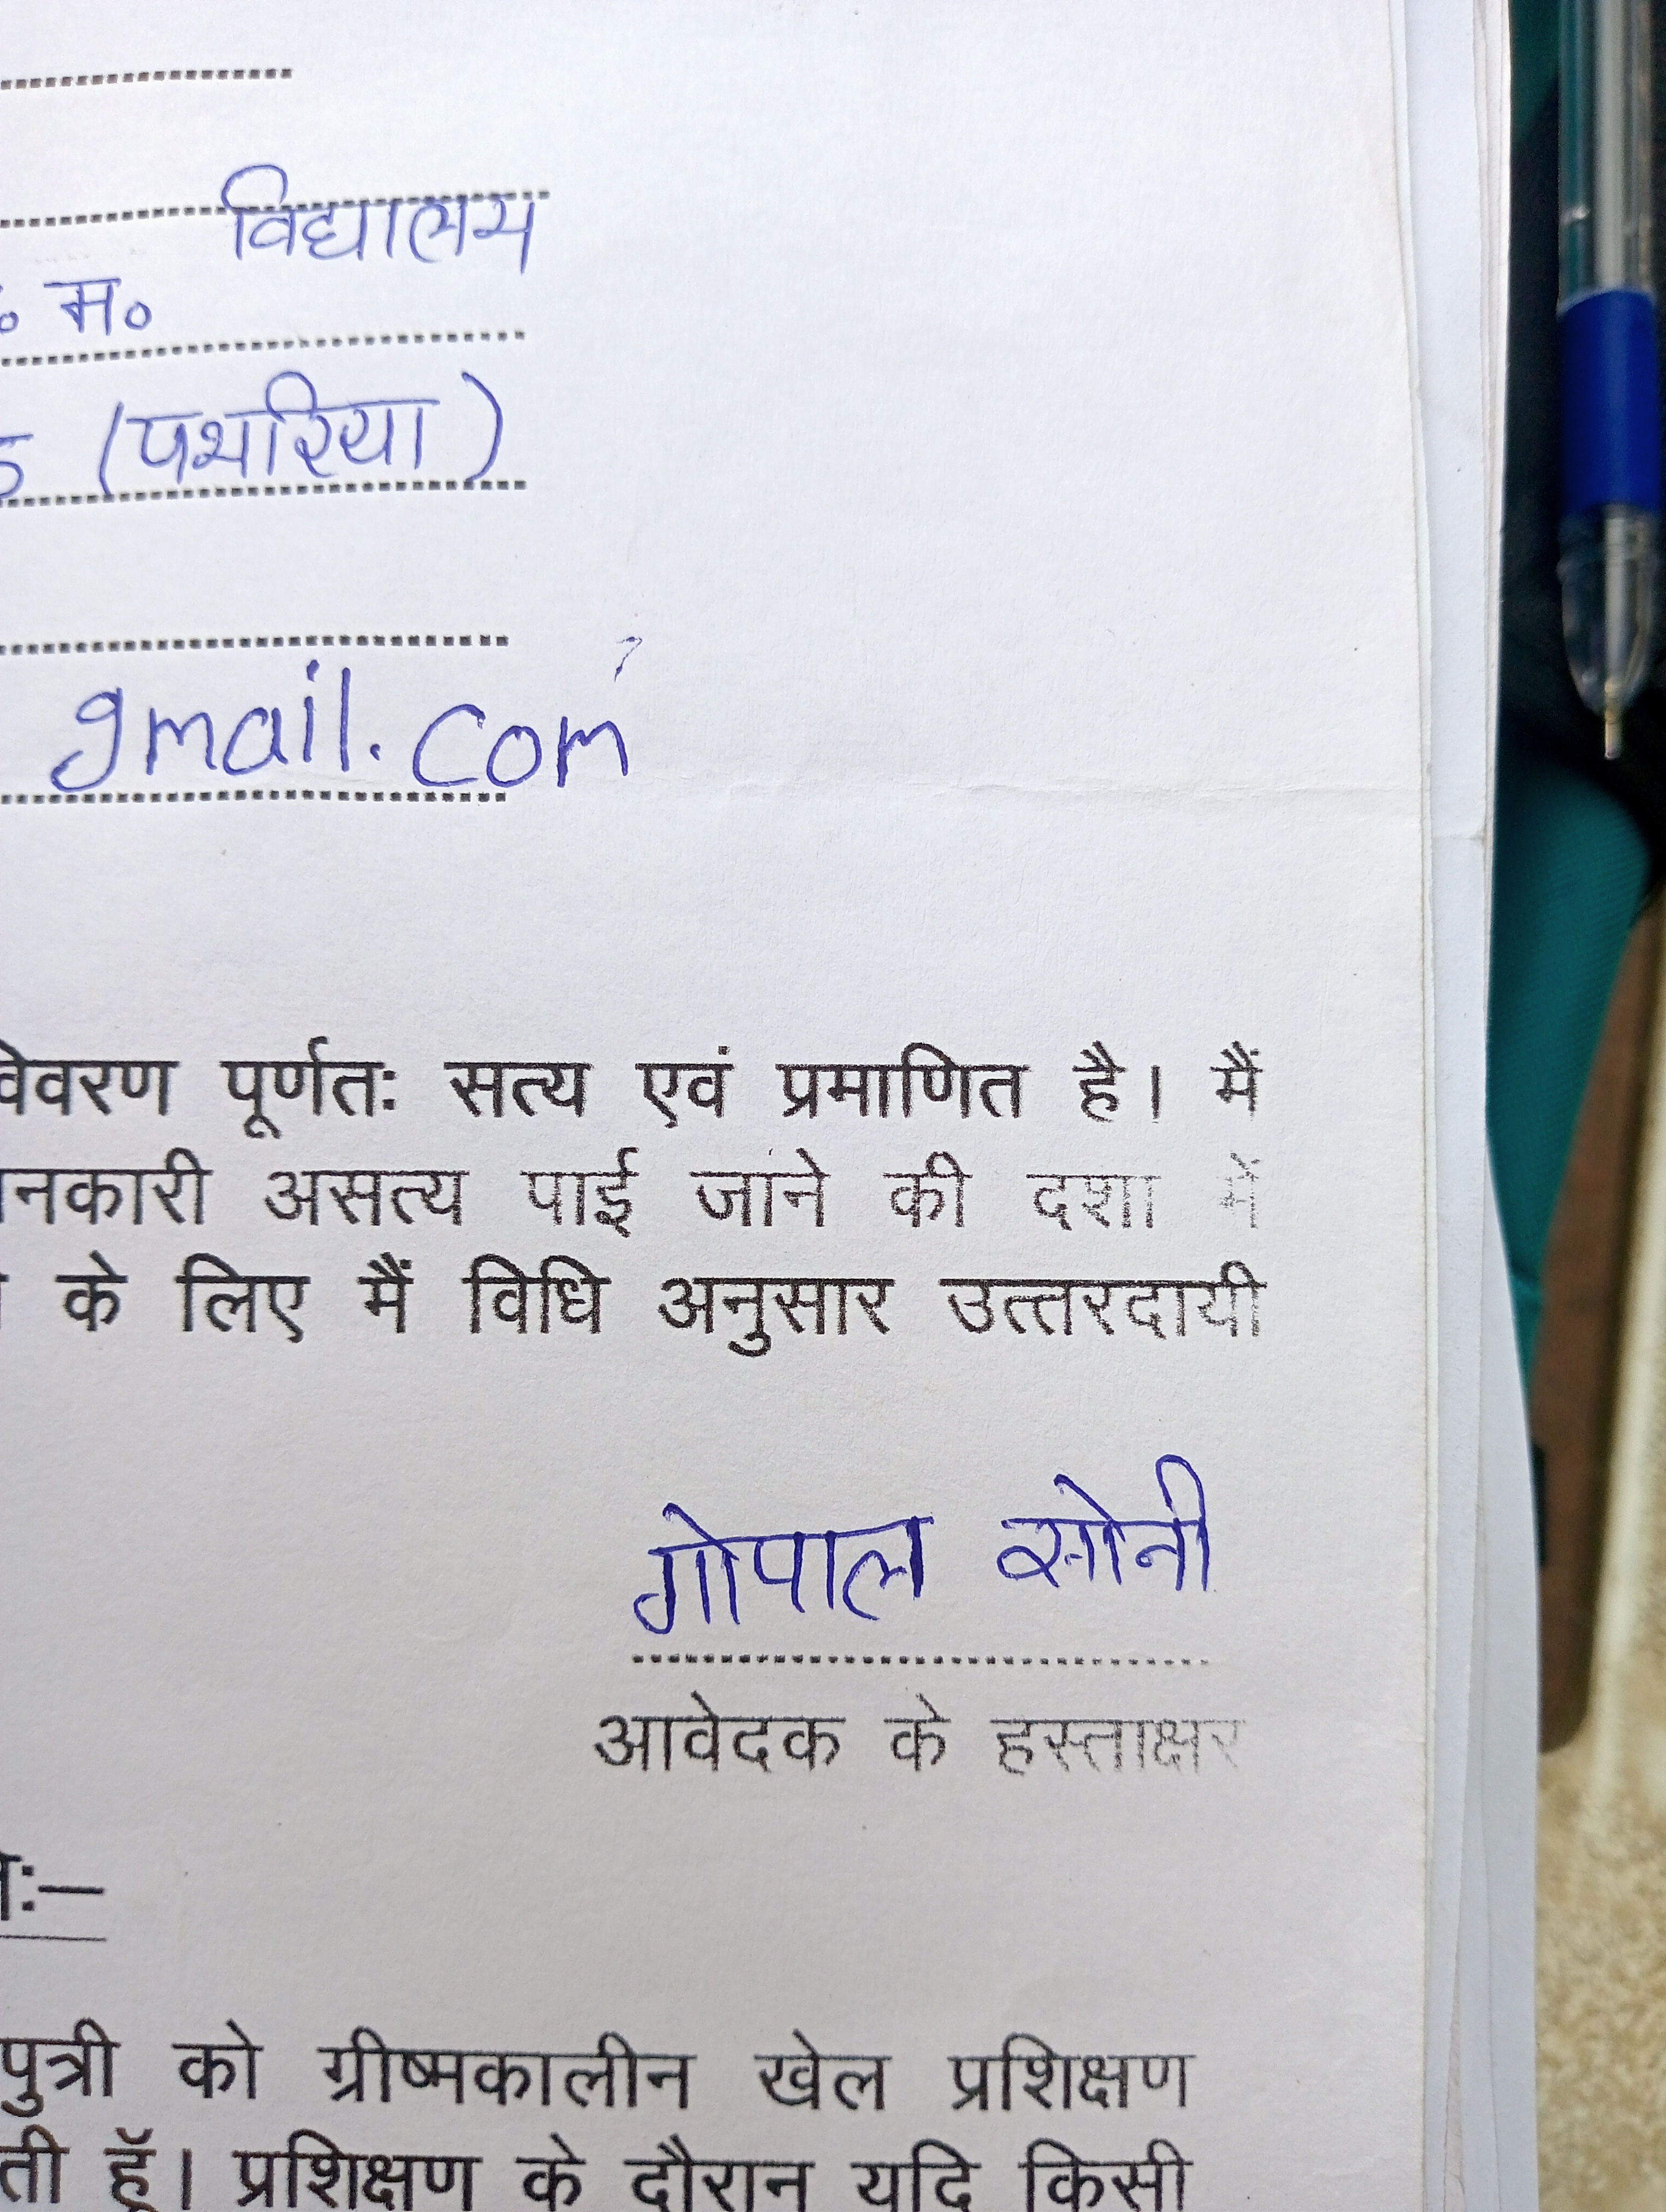 विद्यालय
म॰
(पथरिया)
gmail.com
विवरण पूर्णतः सत्य एवं प्रमाणित है। मैं
नकारी असत्य पाई जाने की दशा में
के लिए मैं विधि अनुसार उत्तरदायी
गोपाल सोनी
आवेदक के हस्ताक्षर
ः—
पुत्री को ग्रीष्मकालीन खेल प्रशिक्षण
ती हूॅ। प्रशिक्षण के दौरान यदि किसी